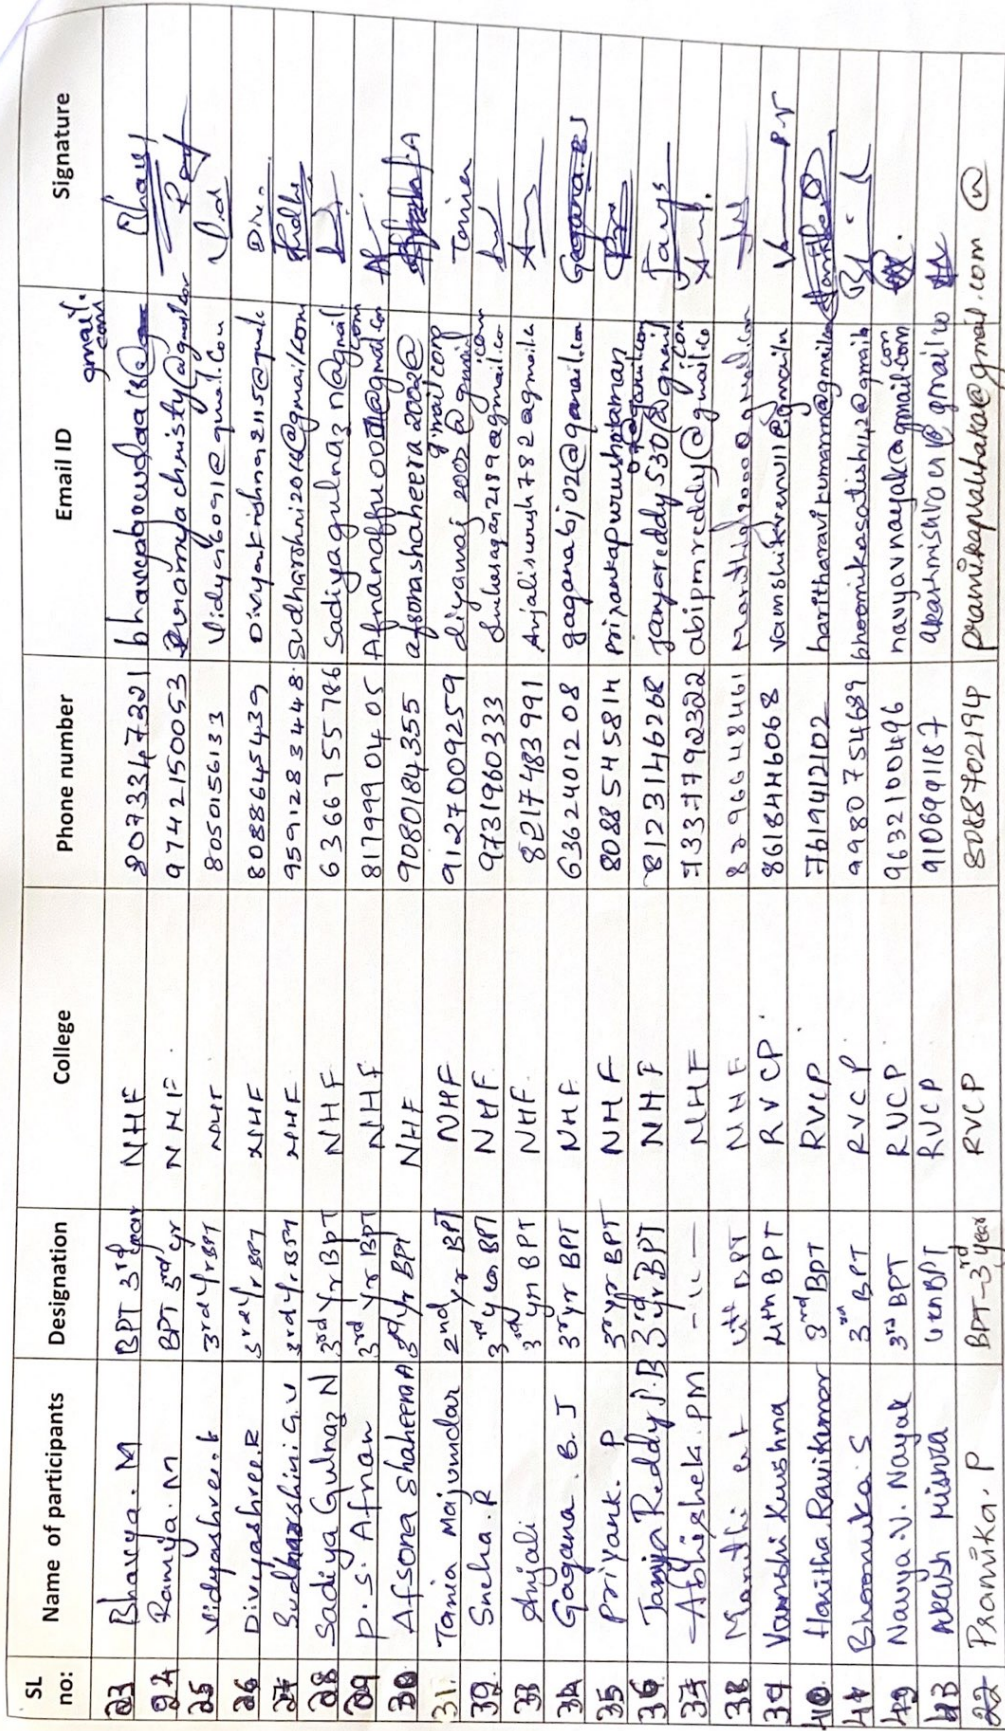 SL no: | Name of participants | Designation | College | Phone number | Email ID | Signature
23 | Bhavya. M | BPT 3rd year | NHF | 8073347321 | bhavyabgowdaa18@gmail.com | Bhavy
24 | Ramya. M | BPT 3rd yr | NHF | 9742150053
25 | Vidyashree. b | 3rd yr BPT | NHF | 8050156133 | Vidya16091@gmail.com | Vid
26 | Divyashree. R | 3rd yr BPT | NHF | 8088645439 | Divyakrishna2115@gmail | Div.
27 | Sudharshini G. V | 3rd yr BPT | NHF | 9591283448 | Sudharshni2014@gmail.com | Sudha
28 | Sadiya Gulnaz N | 3rd yr BPT | NHF | 6366755786 | Sadiyagulnazn@gmail.com
29 | P. S. Afnan | 3rd yr BPT | NHF | 8179990405 | Af
30 | Afsona Shaheema A | 3rd yr BPT | NHF | 9080184355 | afsonashaheera2002@gmail.com
31. | Tania Majumdar | 2nd yr BPT | NHF | 9127009259 | diyamaj2002@gmail.com | Tania
32 | Sneha. R | 3rd year BPT | NHF | 9731960333
33 | Anjali | 3rd yr BPT | NHF. | 8217483991 | Anjalisuresh782@gmail.c | An
34 | Gagana. B. J | 3rd yr BPT | NHF | 6362401208 | gaganabj02@gmail.com | Gagana.BJ
35 | Priyank. P | 3rd yr BPT | NHF | 8088545814 | Pr
36 | Tanya Reddy P. B | 3rd yr BPT | NHF | 8123146268 | tanyareddy530@gmail.com | Tanya
37 | Abhishek. PM | -〃- | NHF | 7337792322 | abipmreddy@gmail.com
38 | 4th BPT | NHF | 8296648461
39 | Vamshi Krushna | 4th BPT | RVCP.  | 8618446068
40 | Haritha Ravikumar | 3rd BPT | RVCP | 7619412102 | haritharavikumarm@gmail.com | Haritha
41 | Bhoomika. S | 3rd BPT | RVCP. | 9980754689 | bhoomikasatish42@gmail.com
42 | Navya. V. Nayak | 3rd BPT | RVCP | 9632100496 | navyavnayak@gmail.com
43 | Akash Mishra | 4th BPT | RVCP | 9106991187
22 | Pramika. P | BPT-3rd year | RVCP | 8088702194